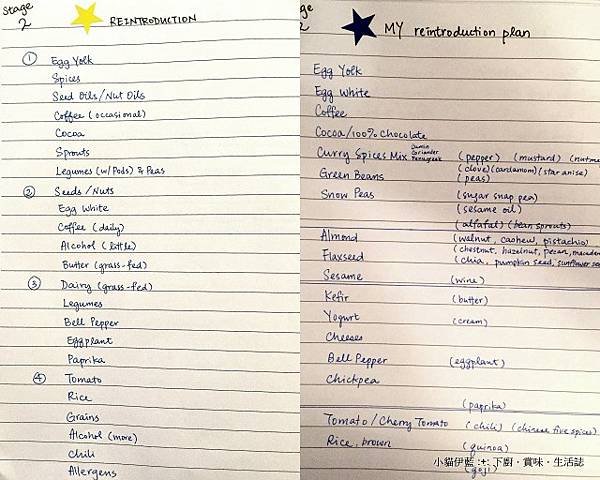 Stage
2
REINTRODUCTION
① Egg Yolk
Spices
Seed Oils/Nut Oils
Coffee (occasional)
Cocoa
Sprouts
Legumes (w/Pods) & Peas
② Seeds/Nuts
Egg White
Coffee (daily)
Alcohol (little)
Butter (grass-fed)
③ Dairy (grass-fed)
Legumes
Bell Pepper
Eggplant
Paprika
④ Tomato
Rice
Grains
Alcohol (more)
Chili
Allergens
ge
2
MY reintroduction plan
Egg Yolk
Egg White
Coffee
Cocoa/100% Chocolate
Curry Spices Mix Cumin Coriander Fenugreek (pepper) (mustard) (nutme
(clove) (cardamom) (star anise)
Green Beans (peas)
Snow Peas (sugar snap pea)
(sesame oil)
(alfafa) (bean sprouts)
Almond (walnut, cashew, pistachio)
(chestnut, hazelnut, pecan, macadem
Flaxseed (chia, pumpkin seed, sunflower see
Sesame (wine)
Kefir (butter)
Yogurt (cream)
Cheeses
Bell Pepper (eggplant)
Chickpea
(paprika)
Tomato/Cherry Tomato (chili) (chinese five spices)
Rice, brown (quinoa)
(goji)
小貓伊藍 :+: 下廚·賞味·生活誌